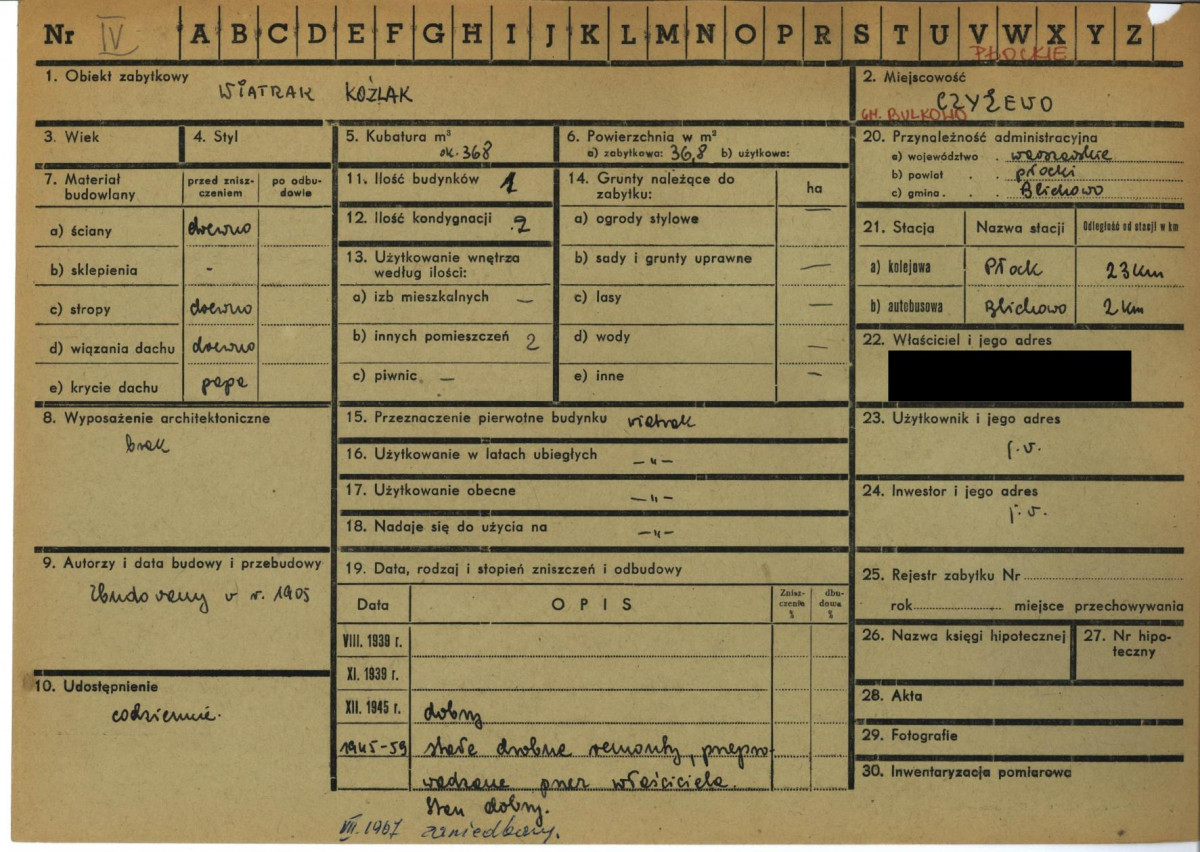 Nr IV A B C D E F G H I J K L M N O P R S T U V W X Y Z
PŁOCKIE
1. Obiekt zabytkowy
WIATRAK KOŹLAK
2. Miejscowość
CZYŻEWO
GM. BULKOWO
3. Wiek
4. Styl
5. Kubatura m³
ok. 368
6. Powierzchnia w m²
a) zabytkowa: 36,8 b) użytkowa:
7. Materiał budowlany
przed znisz-
czeniem
po odbu-
dowie
a) ściany drewno
b) sklepienia -
c) stropy drewno
d) wiązania dachu drewno
e) krycie dachu papa
8. Wyposażenie architektoniczne
brak
9. Autorzy i data budowy i przebudowy
Zbudowany w r. 1905
10. Udostępnienie
codziennie.
11. Ilość budynków 1
12. Ilość kondygnacji 2
13. Użytkowanie wnętrza
według ilości:
a) izb mieszkalnych —
b) innych pomieszczeń 2
c) piwnic —
14. Grunty należące do
zabytku:
ha
a) ogrody stylowe —
b) sady i grunty uprawne —
c) lasy —
d) wody —
e) inne —
15. Przeznaczenie pierwotne budynku wiatrak
16. Użytkowanie w latach ubiegłych —„—
17. Użytkowanie obecne —„—
18. Nadaje się do użycia na —„—
19. Data, rodzaj i stopień zniszczeń i odbudowy
Data OPIS
Znisz-
czenia
%
dbu-
dowa
%
VIII. 1939 r.
XI. 1939 r.
XII. 1945 r. dobry
1945-59 stałe drobne remonty, przepro-
wadzane przez właściciela.
Stan dobry.
VII. 1967 zaniedbany.
20. Przynależność administracyjna
a) województwo . warszawskie
b) powiat . . płocki
c) gmina . . Blichowo
21. Stacja Nazwa stacji Odległość od stacji w km
a) kolejowa Płock 23 km
b) autobusowa Blichowo 2 km
22. Właściciel i jego adres
23. Użytkownik i jego adres
j.w.
24. Inwestor i jego adres
j.w.
25. Rejestr zabytku Nr
rok miejsce przechowywania
26. Nazwa księgi hipotecznej
27. Nr hipo-
teczny
28. Akta
29. Fotografie
30. Inwentaryzacja pomiarowa